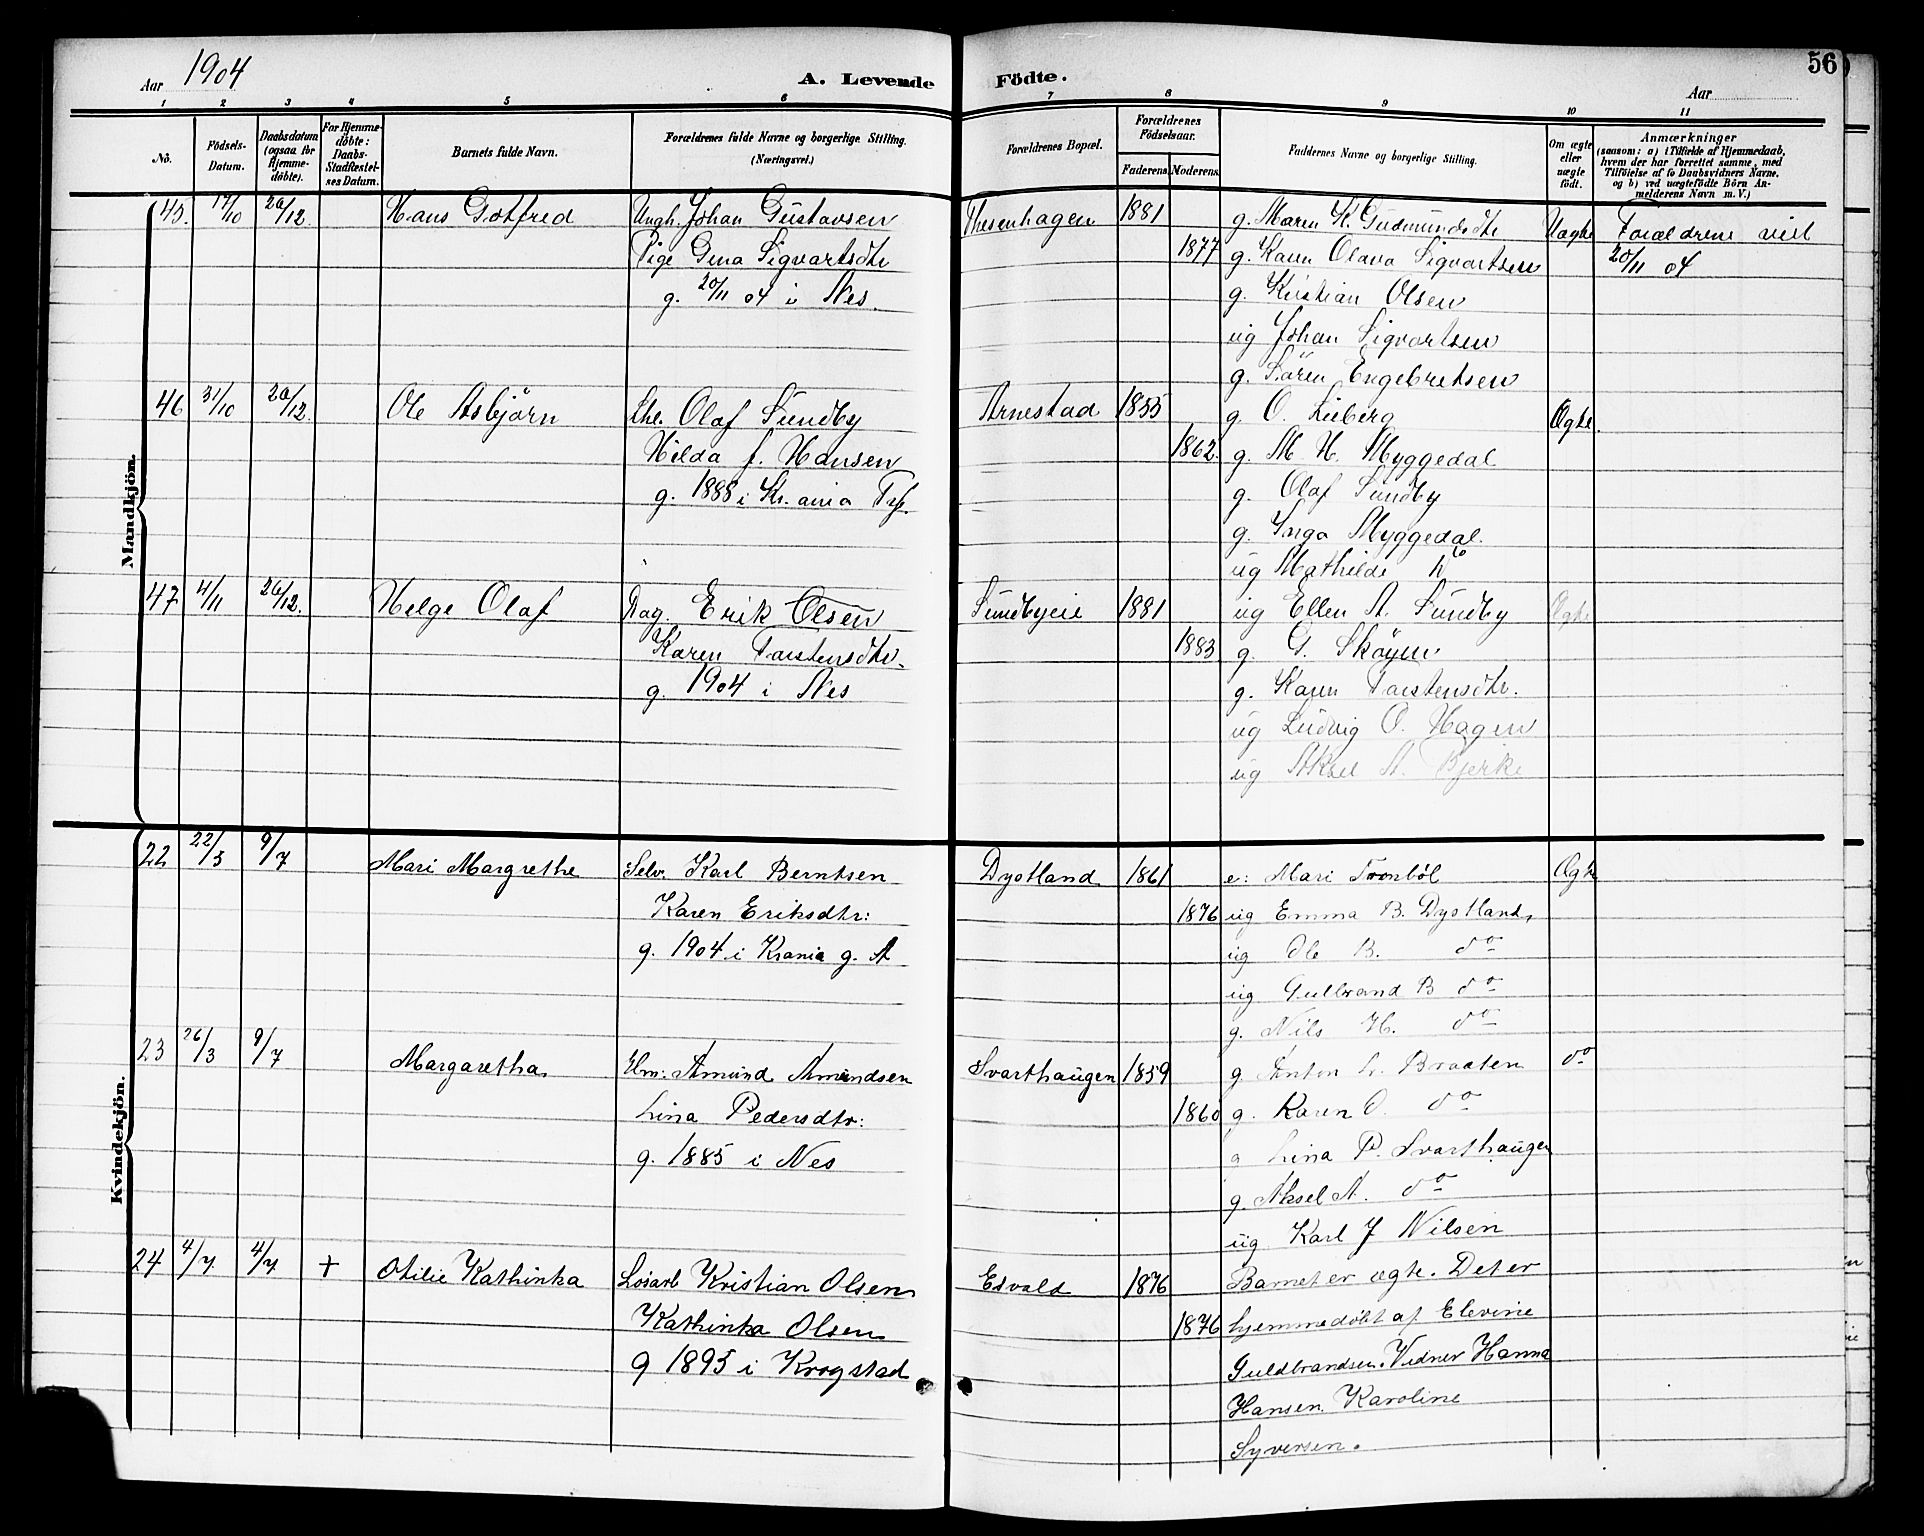 Aar 1904
A. Levende Födte.
56
Aar
1 2 3 4 5 6 7 8 9 10 11
Nö.
Födsels-Datum.
Daabsdatum (ogsaa for Hjemmedöbte).
For Hjemmedöbte: Daabs-Stadfæstelses Datum.
Barnets fulde Navn.
Forældrenes fulde Navne og borgerlige Stilling. (Næringsvei.)
Forældrenes Bopæl.
Forældrenes Födselsaar.
Faderens
Moderens.
Faddernes Navne og borgerlige Stilling.
Om ægte eller uægte födt.
Anmærkninger
(saasom: a) i Tilfælde af Hjemmedaab,
hvem der har forrettet samme, med
Tilföielse af to Daabsvidners Navne.
og b) ved uægtefödte Börn An-
melderens Navn m. V.)
Mandkjön.
45. 17/10 26/12. Hans Gotfred Ungk. Johan Gustavsen Thesenhagen 1881 g. Maren K. Gudmundsdtr Uægte Forældrene viet
Pige Gina Sigvartsdtr 1877 g. Karen Olava Sigvartsen 20/11 04
g. 20/11 04 i Nes. g. Kristian Olsen
ug Johan Sigvartsen
g. Sören Engebretsen
46 31/10 26/12. Ole Asbjörn Olaf Sundby Arnestad 1855 g. O. Lieberg Ægte.
Hilda f. Hansen 1862. g. M. H. Myggedal
g. 1885 i Kr.ania g. Olaf Sundby
g. Inga Myggedal.
ug Mathilde do
47 4/11 26/12. Helge Olaf Dag. Erik Olsen Sundbyeie 1881 ug Ellen A. Sundby Ægte
Karen Torstensdtr. 1883 g. G. Skøyen
g. 1904 i Nes g. Karen Torstensdtr.
ug Ludvig O. Hagen
ug Aksel A. Bjerke
Kvindekjön.
22 22/3 9/7 Mari Margrethe Selv. Karl Berntsen Dystland 1861 e: Mari Tronböl Ægte
Karen Eriksdtr: 1876 ug Emma B. Dystland,
g. 1904 i Krania g. A ug Ole B. do
ug Gulbrand B do
g. Nils H. do
23 26/3 9/7 Margaretha Hm: Amund Amundsen Svarthaugen 1859 g Anton L. Braaten do
Lina Pedersdtr: 1860 g. Karen O. do
g. 1885 i Nes g Lina P. Svarthaugen
g. Aksel A. do
ug Karl J Nilsen
24 4/7. 4/7. + Otilie Kathinka Løsarb Kristian Olsen Esvald 1876 Barnet er ægte. Det er
Kathinka Olsen 1876 hjemmedøbt af Elevine
g 1895 i Krogstad Guldbrandsen. Vidner Hanna
Hansen. Karoline
Syversen.